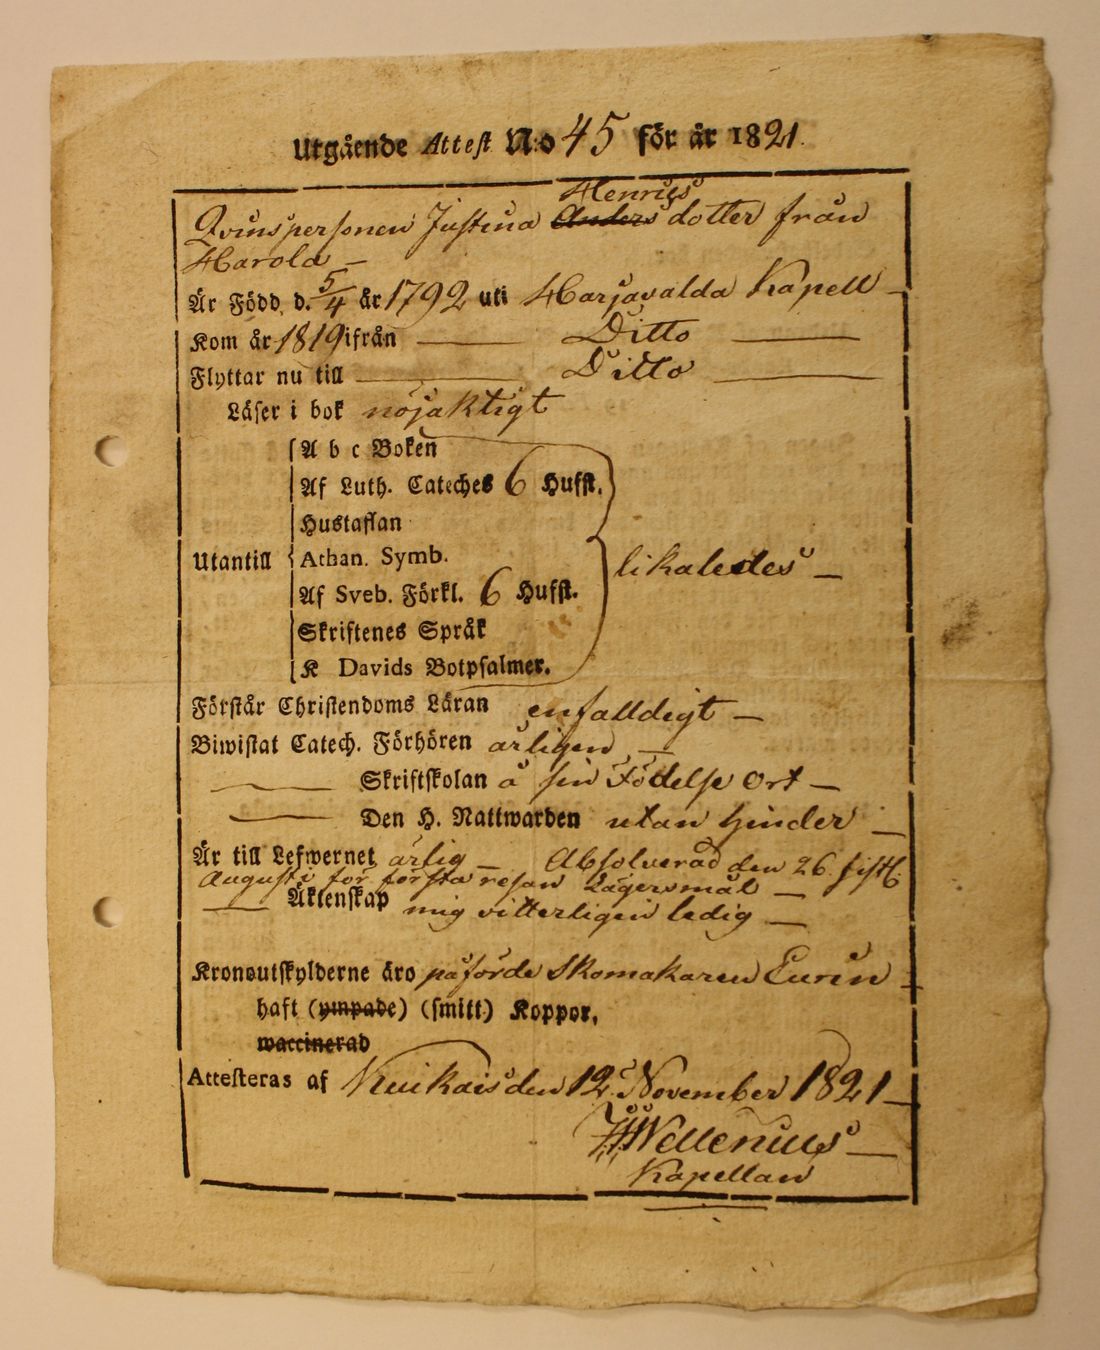 Utgående Attest N:o 45 för år 1821.
Henrics
Qvinspersonen Justina Anders dotter från
Harola —
Är Född d. 5/4 år 1792 uti Harjavalda Kapell —
Kom år 1819 ifrån — Ditto —
Flyttar nu till — Ditto —
Läser i bok nöjaktigt
A b c Boken
Af Luth. Cateches 6 Hufst.
Hustaflan
Utantill Athan. Symb. likaledes —
Af Sveb. Förkl. 6 Hufst.
Skriftenes Språk
K Davids Botpsalmer.
Förstår Christendoms Läran enfalldigt —
Biwistat Catech. Förhören årligen —
— Skriftskolan å sin Födelse Ort —
— Den H. Nattwarden utan hinder —
Är till Lefwernet ärlig — Absolverad den 26 sistl.
Augusti för första resan Lägersmål —
— Äktenskap mig vitterligen ledig —
Kronoutskylderne äro påförde Skomakaren Eurén —
haft (ympade) (smitt) Koppor,
waccinerad
Attesteras af Kuikais den 12 November 1821 —
Wellenius —
Kapellan